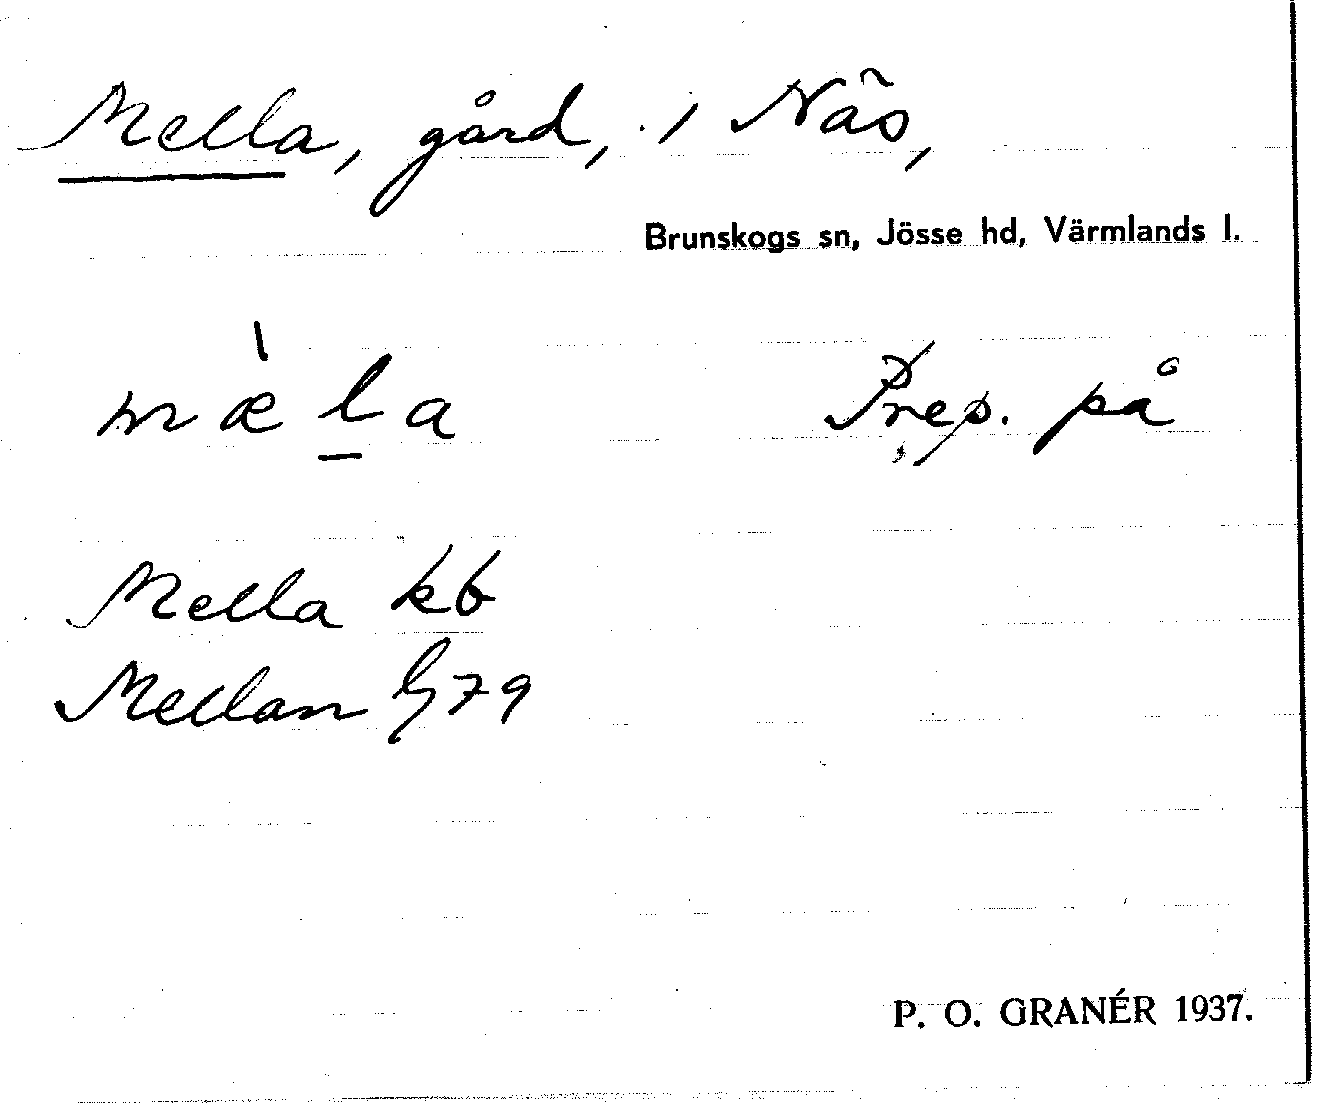 Mella, gård, i Näs,
Brunskogs sn, Jösse hd, Värmlands l.
mæ̀l̲a Prep. på
Mella kb
Mellan G79
P. O. GRANÉR 1937.